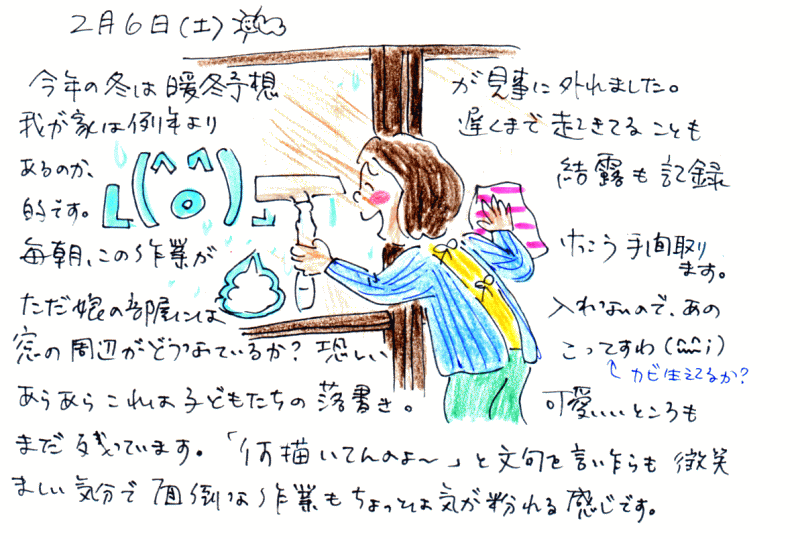 2月6日(土)
今年の冬は暖冬予想が見事に外れました。
我が家は例年より遅くまで起きてることも
あるのか、結露も記録
的です。
毎朝、この作業がけっこう手間取り
ます。
ただ娘の部屋には入れないので、あの
窓の周辺がどうなっているか?恐しいこってすわ(^^;)
カビ生えてるか?
あらあらこれは子どもたちの落書き。可愛いいところも
まだ残っています。「何描いてんのよ〜」と文句を言い乍らも微笑
ましい気分で面倒な作業もちょっとは気が紛れる感じです。